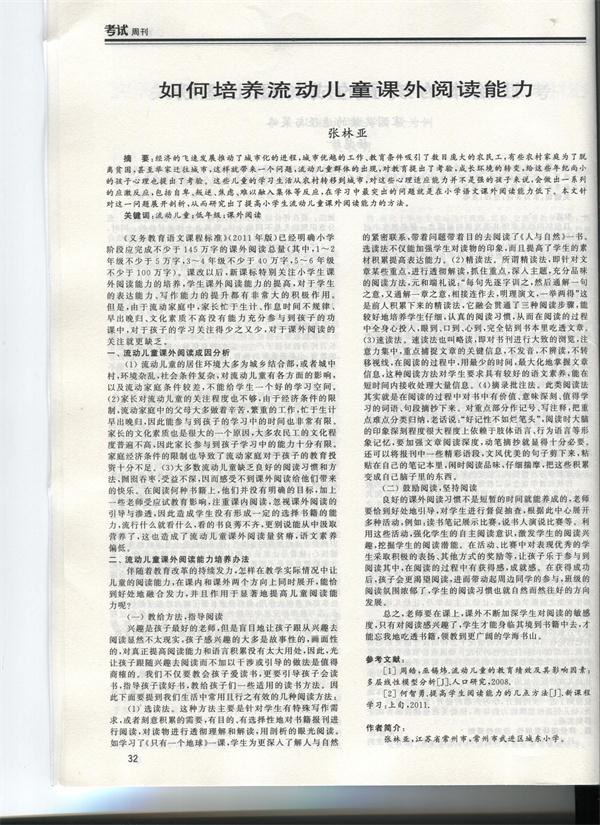 考试周刊
如何培养流动儿童课外阅读能力
张林亚
摘 要:经济的飞速发展推动了城市化的进程,城市优越的工作、教育条件吸引了数目庞大的农民工,有些农村家庭为了脱
离贫困,甚至举家迁往城市,这样就带来一个问题,流动儿童群体的出现,对教育提出了考验,成长环境的转变,给这些年纪尚小
的孩子心理也提出了考验。这些儿童的学习生活从农村转移到城市,对这些心理适应能力并不是强的孩子来说,会做出一系列
的应激反应,包括自卑、叛逆、焦虑、难以融入集体等反应,在学习中最突出的问题就是在小学语文课外阅读能力低下。本文针
对这一问题展开剖析,从而研究出了提高小学生流动儿童课外阅读能力的方法。
关键词:流动儿童;低年级;课外阅读
《义务教育语文课程标准》(2011年版)已经明确小学
阶段应完成不少于145万字的课外阅读总量(其中,1~2
年级不少于5万字,3~4年级不少于40万字,5~6年级
不少于100万字)。课改以后,新课标特别关注小学生课
外阅读能力的培养,学生课外阅读能力的提高,对于学生
的表达能力、写作能力的提升都有非常大的积极作用。
但是,由于流动家庭中,家长忙于生计、作息时间不规律、
早出晚归、文化素质不高没有能力充分参与到孩子的功
课中,对于孩子的学习关注得少之又少,对于课外阅读的
关注就更缺乏。
一、流动儿童课外阅读成因分析
(1)流动儿童的居住环境大多为城乡结合部,或者城中
村,环境杂乱,社会条件复杂,对流动儿童有各方面的影响,
以及流动家庭条件较差,不能给学生一个好的学习空间。
(2)家长对流动儿童的关注程度也不够,由于经济条件的限
制,流动家庭中的父母大多做着辛苦、繁重的工作,忙于生计
早出晚归,因此能参与到孩子的学习中的时间也非常有限。
家长的文化素质也是很大的一个原因,大多农民工的文化程
度普遍不高,因此家长参与到孩子学习中的能力十分有限。
家庭经济条件的限制也导致了流动家庭对于孩子的教育投
资十分不足。(3)大多数流动儿童缺乏良好的阅读习惯和方
法,囫囵吞枣,受益不深,因而感受不到课外阅读给他们带来
的快乐。在阅读何种书籍上,他们并没有明确的目标,加上
一些老师受应试教育影响,注重课内阅读,忽视课外阅读的
引导与渗透,因此造成学生没有形成一定的选择书籍的能
力,流行什么就看什么,看的书良莠不齐,更别说能从中汲取
营养了,这也造成了流动儿童课外阅读量贫瘠,语文素养
偏低。
二、流动儿童课外阅读能力培养办法
伴随着教育改革的持续发力,怎样在教学实际情况中让
儿童的阅读能力,在课内和课外两个方向上同时展开,能恰
到好处地融合发力,并且作用于显著地提高儿童阅读能
力呢?
(一)教给方法,指导阅读
兴趣是孩子最好的老师,但是盲目地让孩子跟从兴趣去
阅读显然不太现实,孩子感兴趣的大多是故事性的,画面性
的,对真正提高阅读能力和语言积累没有太大用处,因此,光
让孩子跟随兴趣去阅读而不加以干涉或引导的做法是值得
商榷的。我们不仅要教会孩子爱读书,更要引导孩子会读
书,指导孩子读好书,教给孩子们一些适用的读书方法。因
此下面要提到我们生活中常用且行之有效的几种阅读方法。
(1)选读法。这种方法主要是针对学生有特殊写作需
求,或者刻意积累的需要,有目的、有选择性地对书籍报刊进
行阅读,对读物进行透彻理解和解读,用剖析的眼光阅读。
如学习了《只有一个地球》一课,学生为更深入了解人与自然
的紧密联系,带着问题带着目的去阅读了《人与自然》一书。
选读法不仅能加强学生对读物的印象,而且提高了学生的素
材积累提高表达能力。(2)精读法。所谓精读法,即针对文
章某些重点,进行透彻解读,抓住重点,深入主题,充分品味
的阅读方法,元和端礼说:“每句先逐字训之,然后通解一句
之意,又通解一章之意,相接连作去,明理演文,一举两得”这
是前人积累下来的精读法,它融会贯通了三种阅读步骤,能
较好地培养学生仔细、认真的阅读习惯,从而在阅读的过程
中全身心投入,眼到、口到、心到,完全钻到书本里吃透文章。
(3)速读法。速读法也叫略读,即对书刊进行大致的阅览,注
意力集中,重点捕捉文章的关键信息,不发音,不辨读,不转
移视线,在阅读的过程中,用最少的时间,最大化地掌握文章
信息,这种阅读方法对学生要求具有较好的语文素养,能在
短时间内接收处理大量信息。(4)摘录批注法。此类阅读法
其实就是在阅读的过程中对书中有价值、意味深刻、值得学
习的词语、句段摘抄下来。对重点部分作记号、写注释,把重
点难点分类归纳,老话说,“好记性不如烂笔头”,阅读时大脑
的印象深刻程度很大程度上依赖于肢体语言、行为语言等形
象记忆,要加强文章阅读深度,动笔摘抄就显得十分必要。
还可以将报刊中一些精彩语段、文风优美的句子剪下来,粘
贴在自己的笔记本里,闲时阅读品味,仔细揣摩,把这些积累
变成自己脑子里的东西。
(二)鼓励阅读,坚持阅读
良好的课外阅读习惯不是短暂的时间就能养成的,老师
要恰到好处地引导,对学生进行督促抽查,根据此中心展开
多种活动,例如:读书笔记展示比赛,说书人演说比赛等。利
用这些活动,强化学生的自主阅读意识,激发学生的阅读兴
趣,挖掘学生的阅读潜能。在活动、比赛中对表现优秀的学
生采取积极的表扬、其他方式的奖励等,让孩子乐于参与到
阅读其中,在阅读的过程中有获得感,成就感。在获得成功
后,孩子会更渴望阅读,进而带动起周边同学的参与,班级的
阅读氛围浓郁了,学生的阅读习惯也就自然而然往好的方向
发展。
总之,老师要在课上、课外不断加深学生对阅读的敏感
度,只有对阅读感兴趣了,学生才能身临其境到书籍中去,才
能忘我地吃透书籍,领教到更广阔的学海书山。
参考文献:
[1]周皓,巫锡炜.流动儿童的教育绩效及其影响因素:
多层线性模型分析[J].人口研究,2008.
[2]何智勇.提高学生阅读能力的几点方法[J].新课程
学习:上旬,2011.
作者简介:
张林亚,江苏省常州市,常州市武进区城东小学。
32